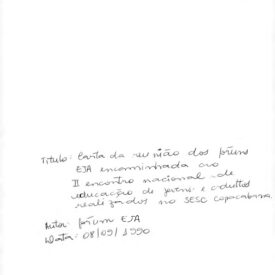 Título: Carta da reunião dos fóruns
EJA encaminhada ao
II encontro nacional de
educação de jovens e adultos
realizados no SESC copacabana.
Autor: fórum EJA
Data: 08/09/1990